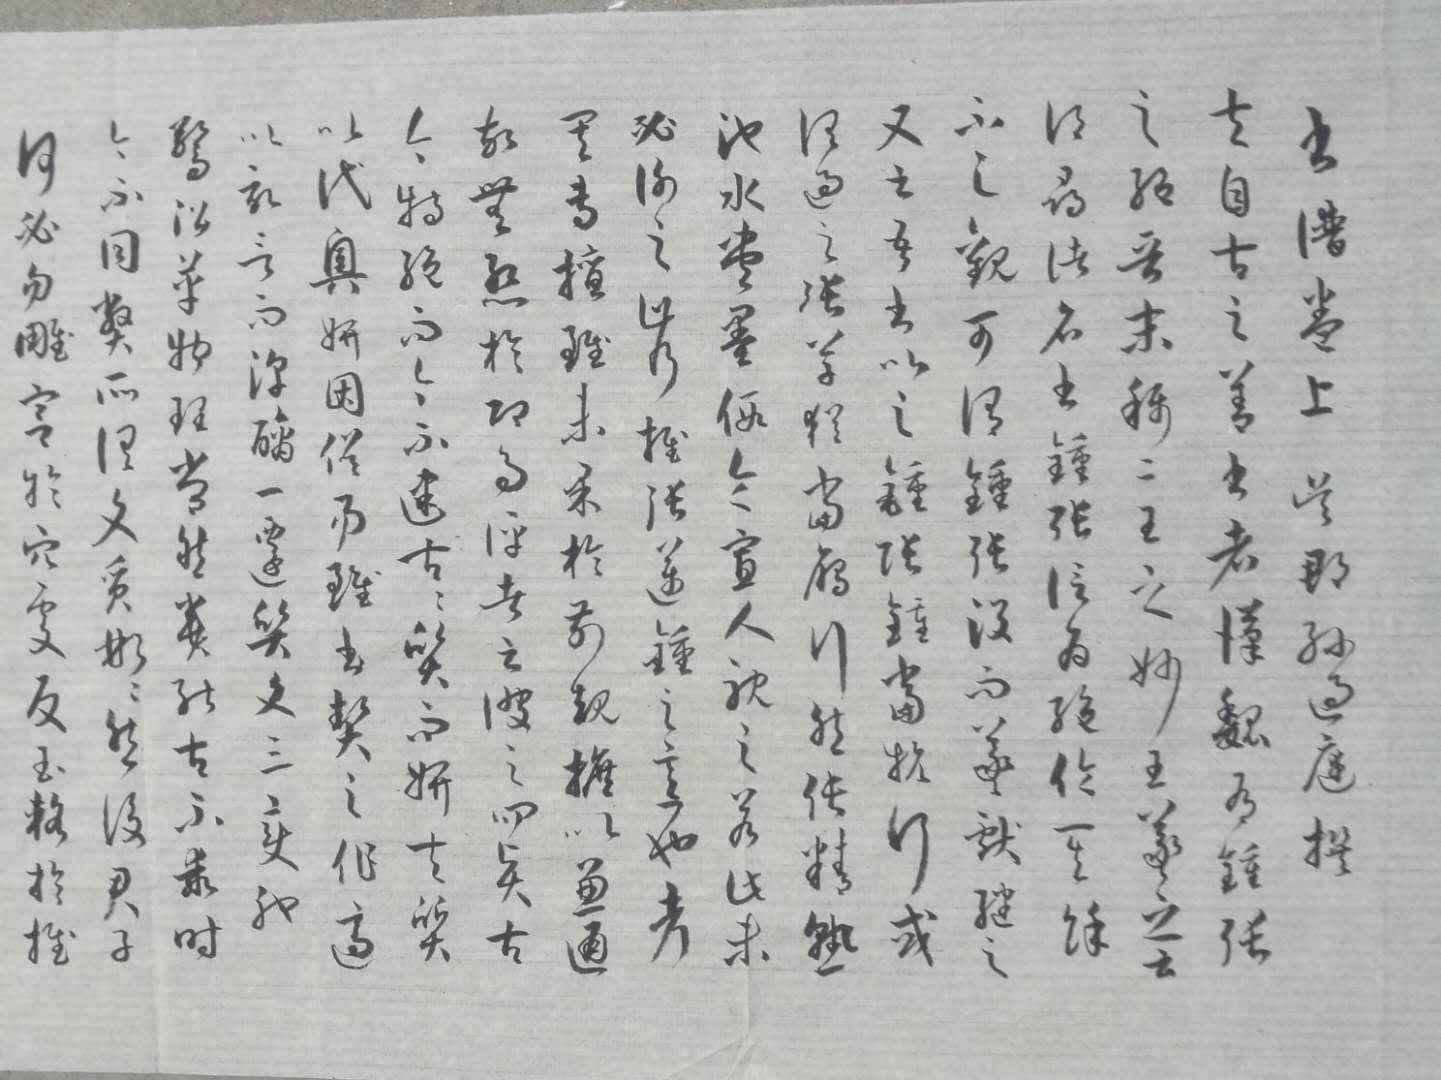 書譜卷上 吳郡孫過庭撰
夫自古之善書者漢魏有鍾張
之絕晉末稱二王之妙王羲之云
頃尋諸名書鍾張信為絕倫其餘
不足觀可謂鍾張沒而羲獻繼之
又云吾書比之鍾張鍾當抗行或
謂過之張草猶當鴈行然張精熟
池水盡墨假令寡人耽之若此未
必謝之此乃推張邁鍾之意也考
其專擅雖未果於前規摭以兼通
故無慚於即事評者云彼之四賢古
今特絕而今不逮古古質而今妍夫質
以代興妍因俗易雖書契之作適
以記言而淳醨一遷質文三變馳
騖沿革物理常然貴能古不乖時
今不同弊所謂文質彬彬然後君子
何必易雕宮於穴處反玉輅於椎